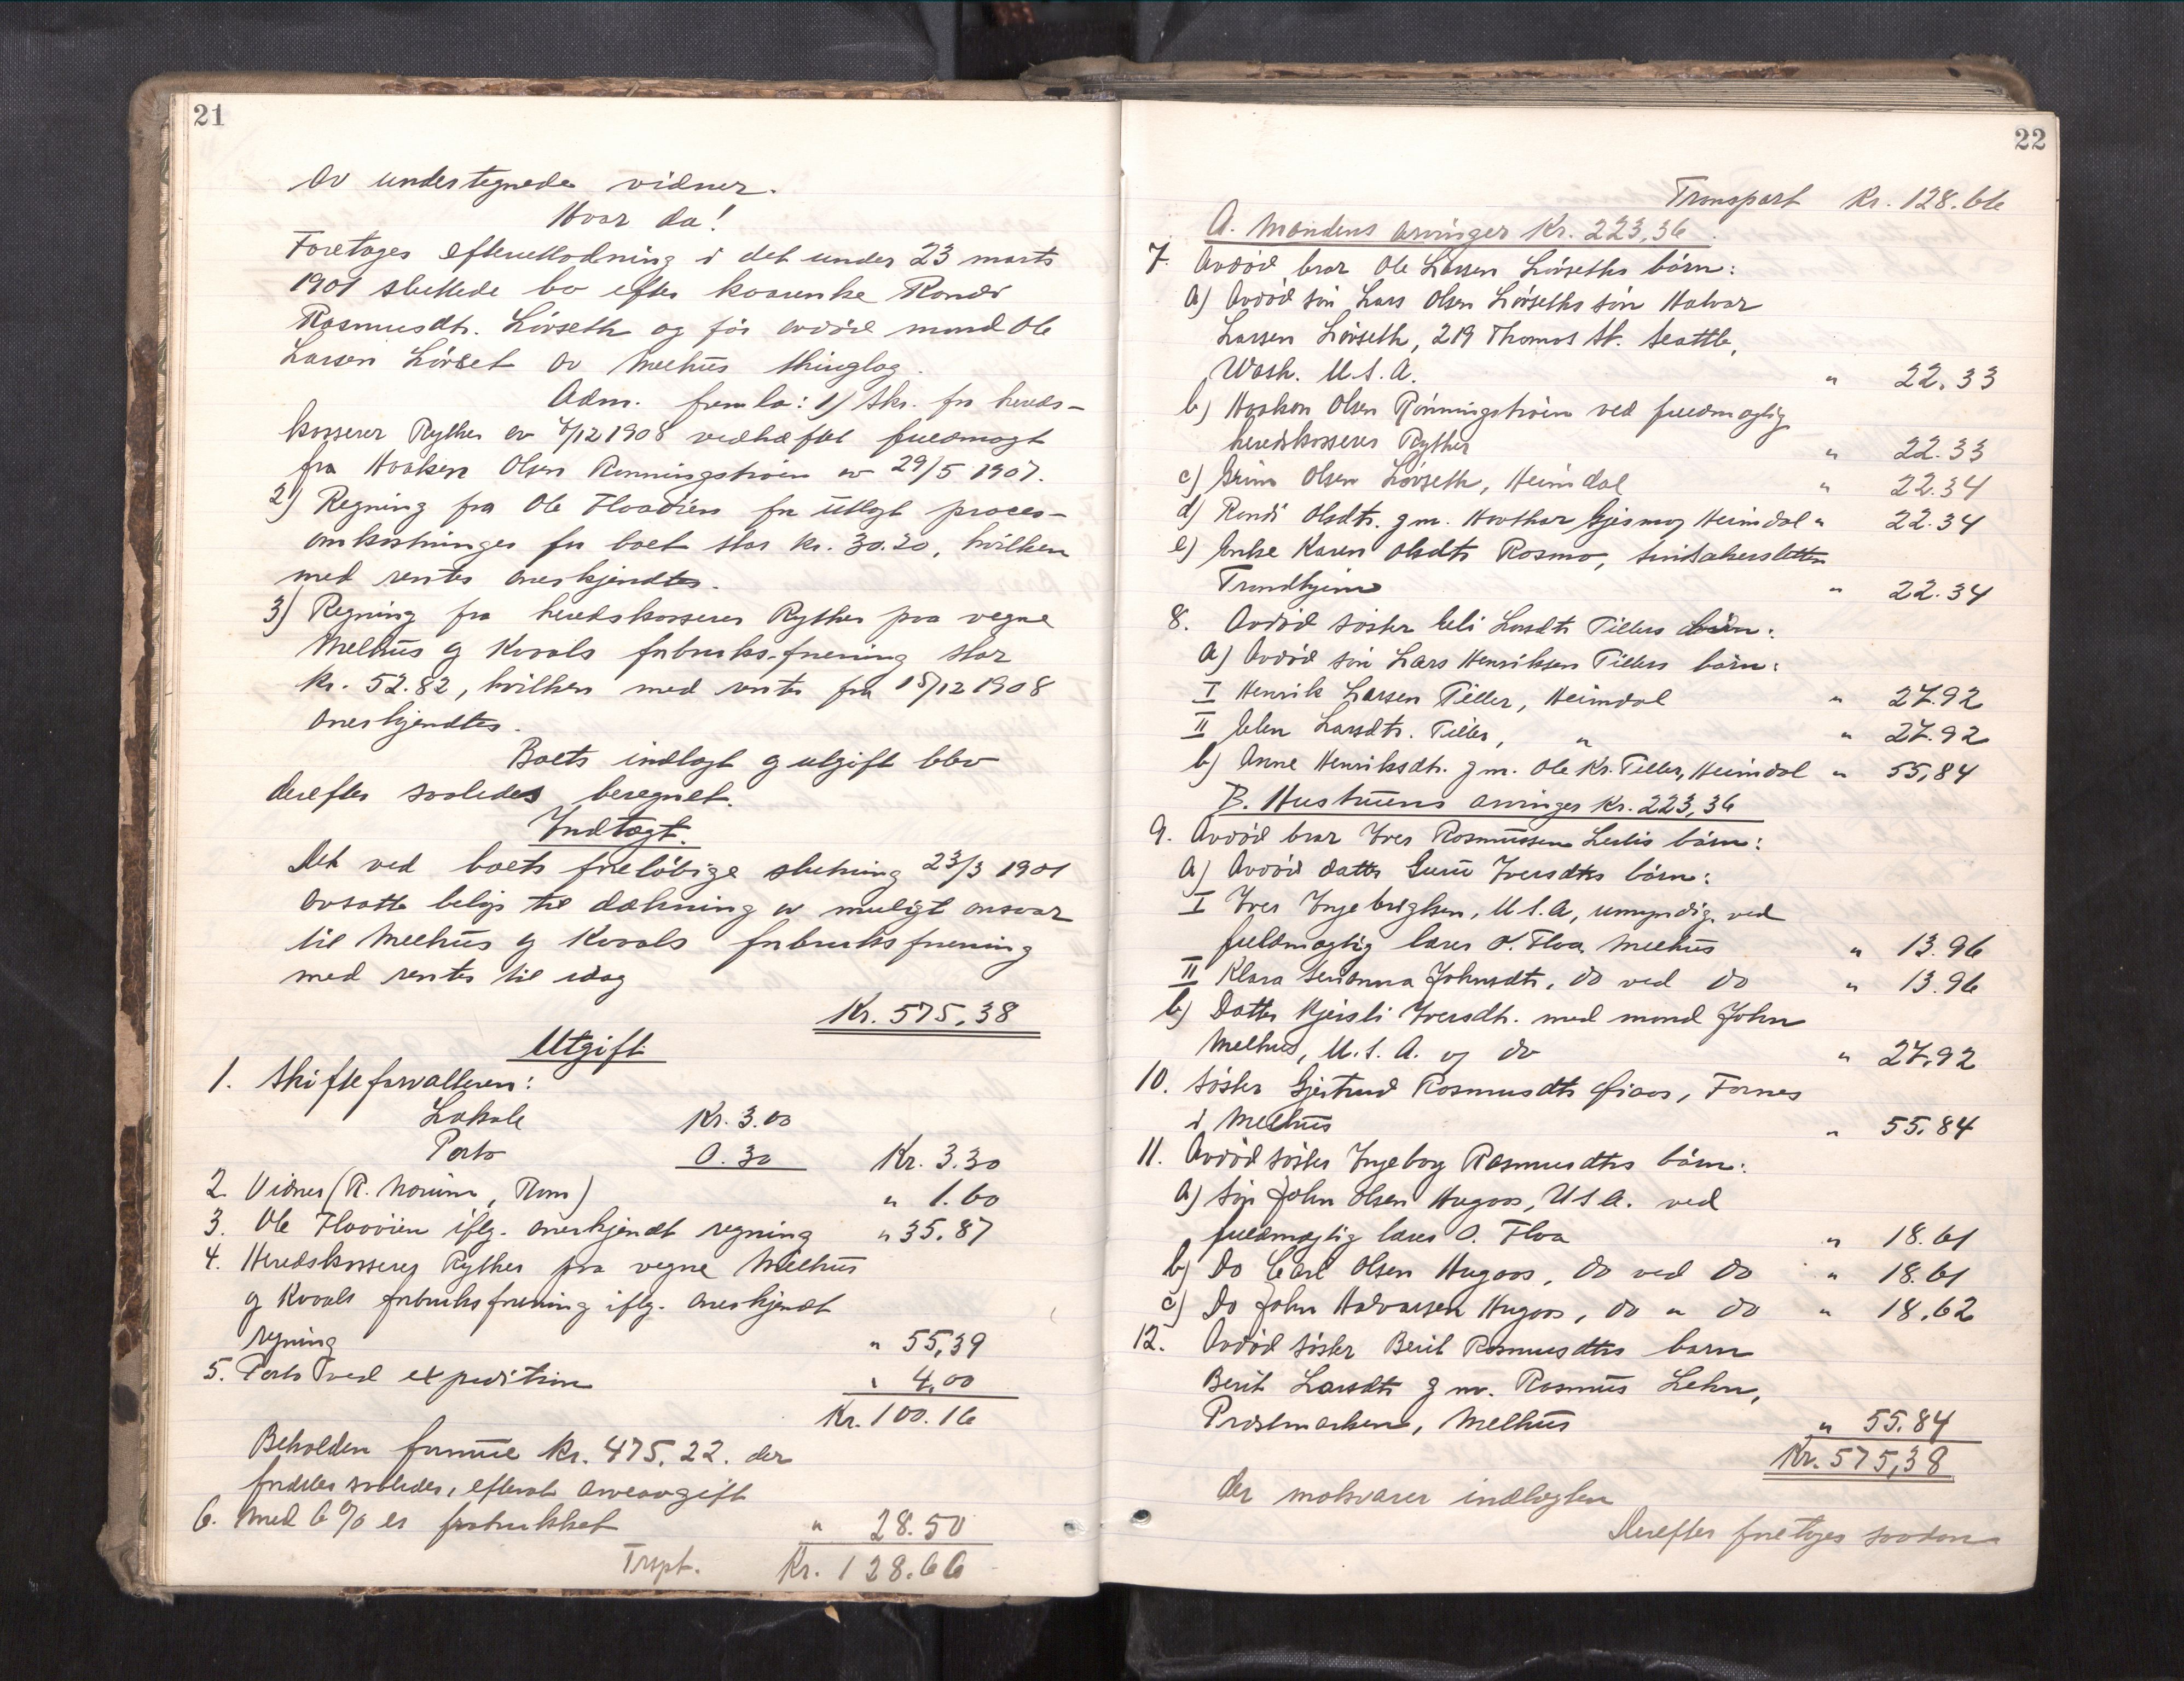 21
av undertegnede vidner.
Hvor da!
Foretages efterutlodning i det under 23 marts
1901 sluttede bo efter kaarenke Randi
Rasmusdtr. Lövseth og før avdöd mand Ole
Larsen Lövset av Melhus thinglag.
Adm. fremla: 1) Skr. fra hereds-
kasserer Ryther av /12 1908 vedhæftet fuldmagt
fra Haaken Olsen Rønningstrøen av 29/5 1907.
2) Regning fra Ole Flaaöien for utlagt proces-
omkostninger for boet stor kr. 30.20, hvilken
med renter anerkjendtes.
3) Regning fra heredskasserer Ryther paa vegne
Melhus og Kvaals forbruksforening stor
kr. 52.82, hvilken med renter fra 15/12 1908
anerkjendtes.
Boets indtægt og utgift blev
derefter saaledes beregnet.
Indtægt.
Det ved boets foreløbige slutning 23/3 1901
avsatte beløp til dækning av muligt ansvar
til Melhus og Kvaals forbruksforening
med renter til idag
Kr. 575,38
Utgift
1. Skifteforvalteren:
Lokale Kr. 3.00
Porto 0.30 Kr. 3.30
2. Vidner (R. Norum, Rom) " 1.60
3. Ole Flaaöien iflg. anerkjendt regning " 35.87
4. Heredskasserer Ryther paa vegne Melhus
og Kvaals forbruksforening iflg. anerkjendt
regning " 55,39
5. Porto ved expedition " 4,00
Kr. 100.16
Beholden formue kr. 475.22. der
fordeles saaledes, efterat arveavgift
6. med 6 % er fratrukket " 28.50
Trspt. Kr. 128.66
22
Transport Kr. 128.66
A. Mandens arvinger Kr. 223,36.
7. Avdöd bror Ole Larsen Lövseths börn:
a) Avdöd sön Lars Olsen Lövseths sön Halvar
Larsen Lövseth, 219 Thomas St. Seattle,
Wash. U.S.A. " 22.33
b) Haaken Olsen Rönningströen ved fuldmægtig
heredskasserer Ryther " 22.33
c) Olsen Lövseth, Heimdal " 22.34
d) Randi Olsdtr. g m. Heimdal " 22.34
e) Enke Karen Olsdtr Rosmo, Sindsakersletten
Trondhjem " 22.34
8. Avdöd söster Eli Larsdtr Tillers börn:
a) Avdöd sön Lars Henriksen Tillers börn:
I Henrik Larsen Tiller, Heimdal " 27.92
II Elen Larsdtr. Tiller, " " 27.92
b) Anne Henriksdtr. g m. Ole Kr. Tiller, Heimdal " 55,84
B. Hustruens arvinger Kr. 223,36
9. Avdöd bror Iver Rasmussen börn:
a) Avdöd datter Guru Iversdtrs börn:
I Iver Ingebrigtsen, U.S.A, umyndig ved
fuldmægtig lærer O. Flaa Melhus " 13.96
II Klara Johnsdtr, do ved do " 13.96
b) Datter Kjersti Iversdtr. med mand John
Melhus, U.S.A. og do " 27.92
10. Söster Gjertrud Rasmusdtr , Fornes
i Melhus " 55.84
11. Avdöd söster Ingeborg Rasmusdtrs börn:
a) Sön John Olsen Hugaas, U S A. ved
fuldmægtig lærer O. Flaa " 18.61
b) Do Carl Olsen Hugaas, do ved do " 18.61
c) Do John Halvarsen Hugaas, do " do " 18.62
12. Avdöd söster Berit Rasmusdtrs barn
Berit Larsdtr g m. Rasmus Lehn,
Prestmarken, Melhus " 55.84
Kr. 575,38
der motsvarer indtægten
Derefter foretoges saadan